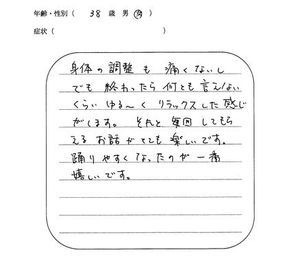 年齢・性別( 38 歳 男 女 )
症状( )
身体の調整も 痛くないし
でも 終わったら何とも言えない
くらい ゆる〜く リラックスした感じ
がします。 それと 毎回してもら
える お話がとても楽しいです。
踊りやすくなったのが 一番
嬉しいです。